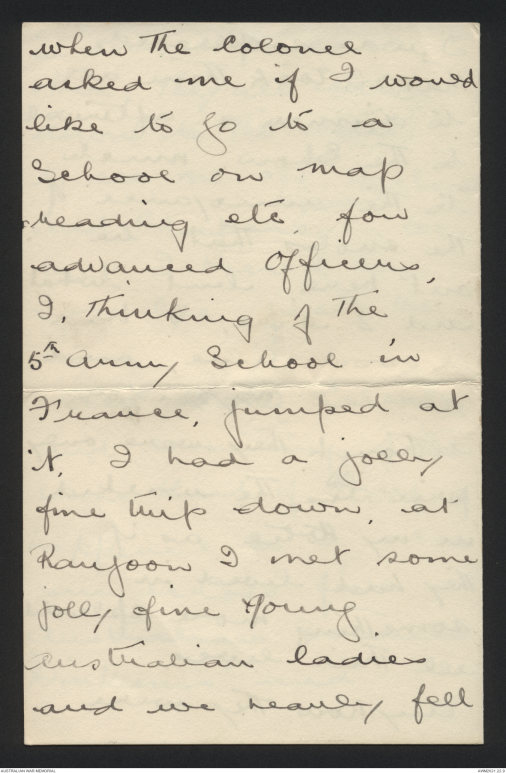 when The Colonel
asked me if I would
like to go to a
School on map
reading etc for
advanced Officers,
I, thinking of The
5th Army School in
France, jumped at
it, I had a jolly
fine trip down, at
Rangoon I met some
jolly fine young
Australian ladies
and we nearly fell
AUSTRALIAN WAR MEMORIAL